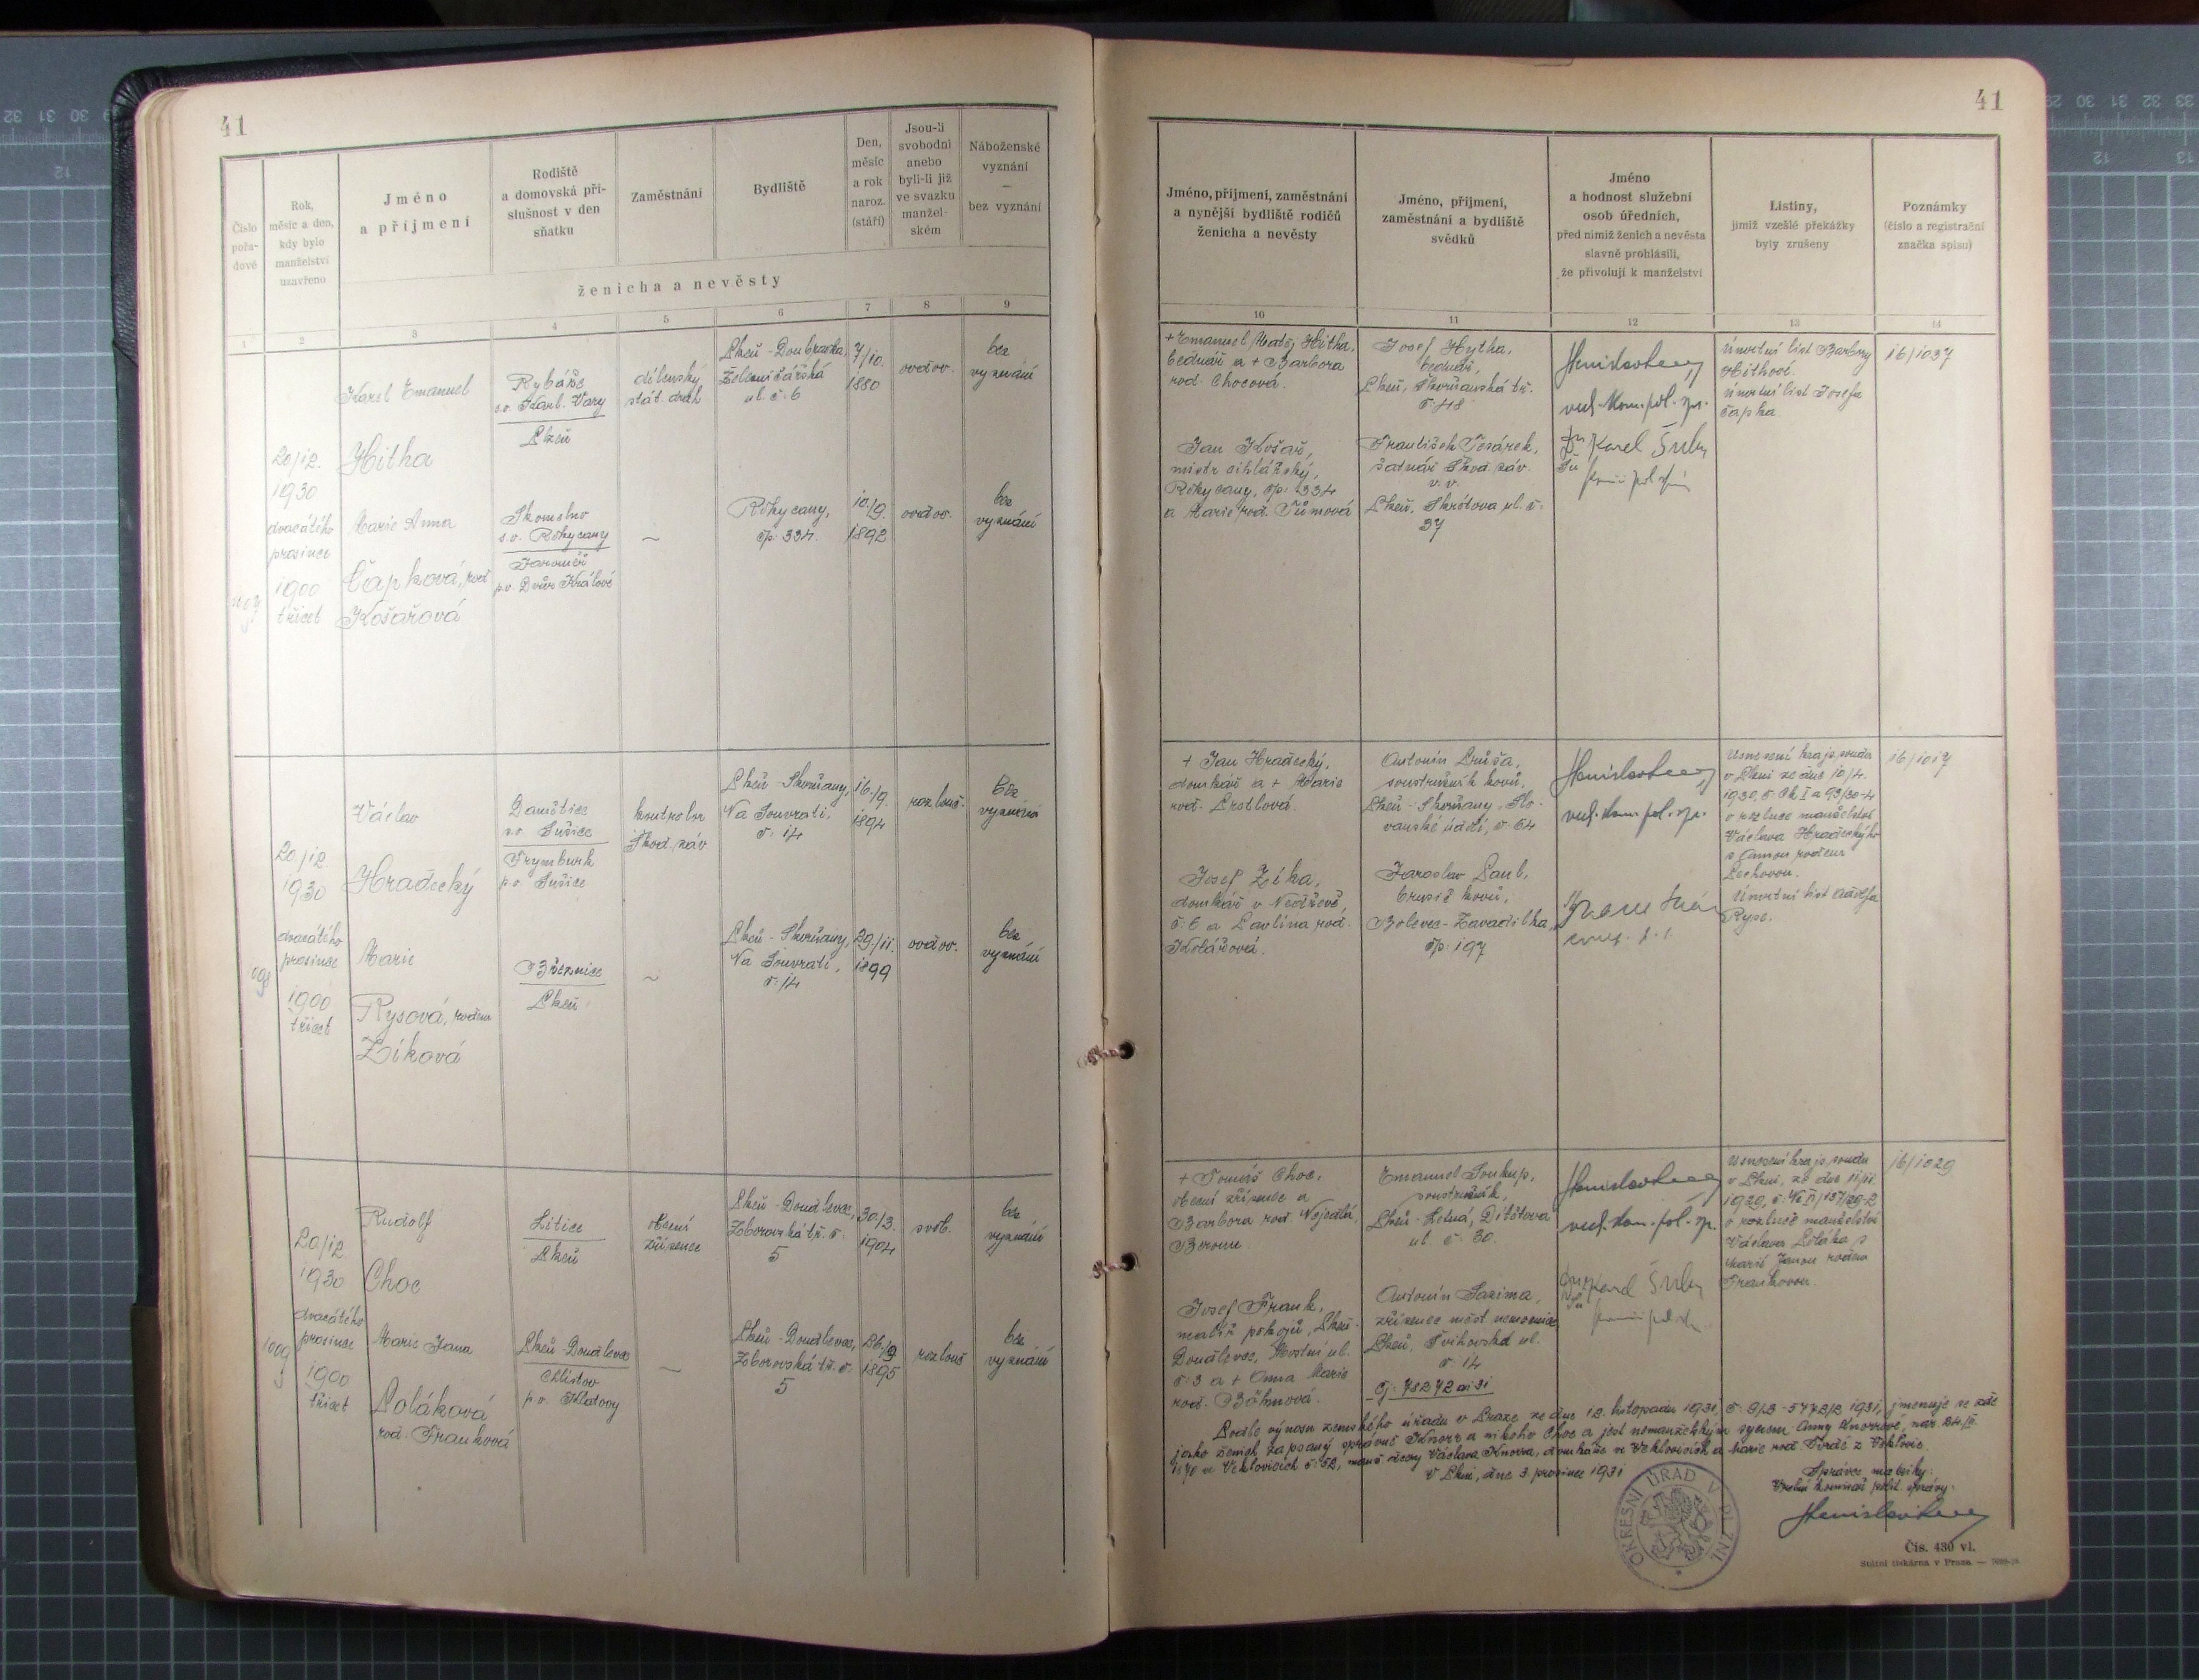 41
Číslo
pořa-
dové
Rok,
měsíc a den,
kdy bylo
manželství
uzavřeno
Jméno
a příjmení
Rodiště
a domovská pří-
slušnost v den
sňatku
Zaměstnání
Bydliště
Den,
měsíc
a rok
naroz.
(stáří)
Jsou-li
svobodni
anebo
byli-li již
ve svazku
manžel-
ském
Náboženské
vyznání
—
bez vyznání
ženicha a nevěsty
1 2 3 4 5 6 7 8 9
20/12.
1930
dvacátého
prosince
1900
třicet
Karel Emanuel
Hitha
Rybáře
s.o. Karl. Vary
Plzeň
dílenský
stát. drah
Plzeň - Doubravka,
Železničářská
ul. č. 6
7/10.
1880
ovdov.
bez
vyznání
Marie Anna
Čapková, roz.
Košařová
Skomelno
s.o. Rokycany
Jaroměř
p.o. Dvůr Králové
~
Rokycany,
čp. 334.
10/9.
1892
ovdov.
bez
vyznání
20/12.
1930
dvacátého
prosince
1900
třicet
Václav
Hradecký
Damětice
s.o. Sušice
Frymburk
p.o. Sušice
kontrolor
Škod. záv
Plzeň - Skvrňany,
Na Souvrati,
č. 14
16./9.
1894
rozlouč.
bez
vyznání
Marie
Rysová, rozena
Zíková
Březnice
Plzeň
~
Plzeň - Skvrňany,
Na Souvrati,
č. 14
29/11.
1899
ovdov.
bez
vyznání
1009
20/12.
1930
dvacátého
prosince
1900
třicet
Rudolf
Choc
Litice
Plzeň
obecní
zřízenec
Plzeň - Doudlevce,
Zborovská tř. č.
5
30./3.
1904
svob.
bez
vyznání
Marie Jana
Poláková
roz. Franková
Plzeň - Doudlevce
Chlistov
p.o. Klatovy
—
Plzeň - Doudlevce,
Zborovská tř. č.
5
26./9
1895
rozlouč
bez
vyznání
41
Jméno, příjmení, zaměstnání
a nynější bydliště rodičů
ženicha a nevěsty
Jméno, příjmení,
zaměstnání a bydliště
svědků
Jméno
a hodnost služební
osob úředních,
před nimiž ženich a nevěsta
slavně prohlásili,
že přivolují k manželství
Listiny,
jimiž vzešlé překážky
byly zrušeny
Poznámky
(číslo a registrační
značka spisu)
10 11 12 13 14
+ Emanuel Matěj Hitha,
bednář a + Barbora
rod. Chocová.
Josef Hytha,
bednář,
Plzeň, Skvrňanská tř.
č. 118
vrch. kom. pol. spr.
Úmrtní list Barbory
Hithové.
Úmrtní list Josefa
Čapka.
16/1037
Jan Košař,
mistr cihlářský,
Rokycany, čp. 334
a Marie rod. Tůmová
František Tesárek,
šatnář Škod. záv.
v. v.
Plzeň, Skrétova ul. č.
37
Karel
+ Jan Hradecký,
domkář a + Marie
rod.
Antonín Průša,
soustružník kovů,
Plzeň - Skvrňany, Slo-
vanské údolí, č. 64
vrch. kom. pol. spr.
Usnesení kraj. soudu
v Plzni ze dne 10/4.
1930, č. Ck I a 93/30-4
o rozluce manželství
Václava Hradeckého
s Annou rozenou
Pechovou.
Úmrtní list Adolfa
Ryse.
16/1017
Josef Zíka,
domkář v
č. 6 a Pavlína rod.
Kolářová.
Jaroslav Paul,
brusič kovů,
Bolevec - Zavadilka,
čp. 197
+ Tomáš Choc,
obecní zřízenec a
Barbora rod. Nejedlá,
Beroun
Emanuel Soukup,
soustružník,
Plzeň - Letná, Dittetova
ul. č. 30.
vrch. kom. pol. sp.
Usnesení kraj. soudu
v Plzni, ze dne 11/11.
o rozluce manželství
Václava Poláka s
Marií Janou rozenou
Frankovou.
16/1029
Josef Frank,
malíř pokojů, Plzeň-
Doudlevce, Mostní ul.
č. 3 a + Anna Marie
rod. Böhmová.
Antonín Sazima,
zřízenec měst. nemocnice
Plzeň, Švihovská ul.
č. 14
Karel
Čj: 78272 ai 31
Podle výnosu zemského úřadu v Praze ze dne 12. listopadu 1931, č. jmenuje se zde
jako ženich zapsaný správně Knorr a nikoliv Choc a jest nemanželským synem Anny Knorrové, nar.
1870 ve Vehlovicích č. 52, manž. dcery Václava Knorra, domkáře ve Vehlovicích a Marie rod. Tvrdé z Vehlovic.
V Plzni, dne 3 prosince 1931
Správce matriky:
Vrchní komisař polit. správy.
OKRESNÍ ÚŘAD V PLZNI
Čís. 430 vl.
Státní tiskárna v Praze. —